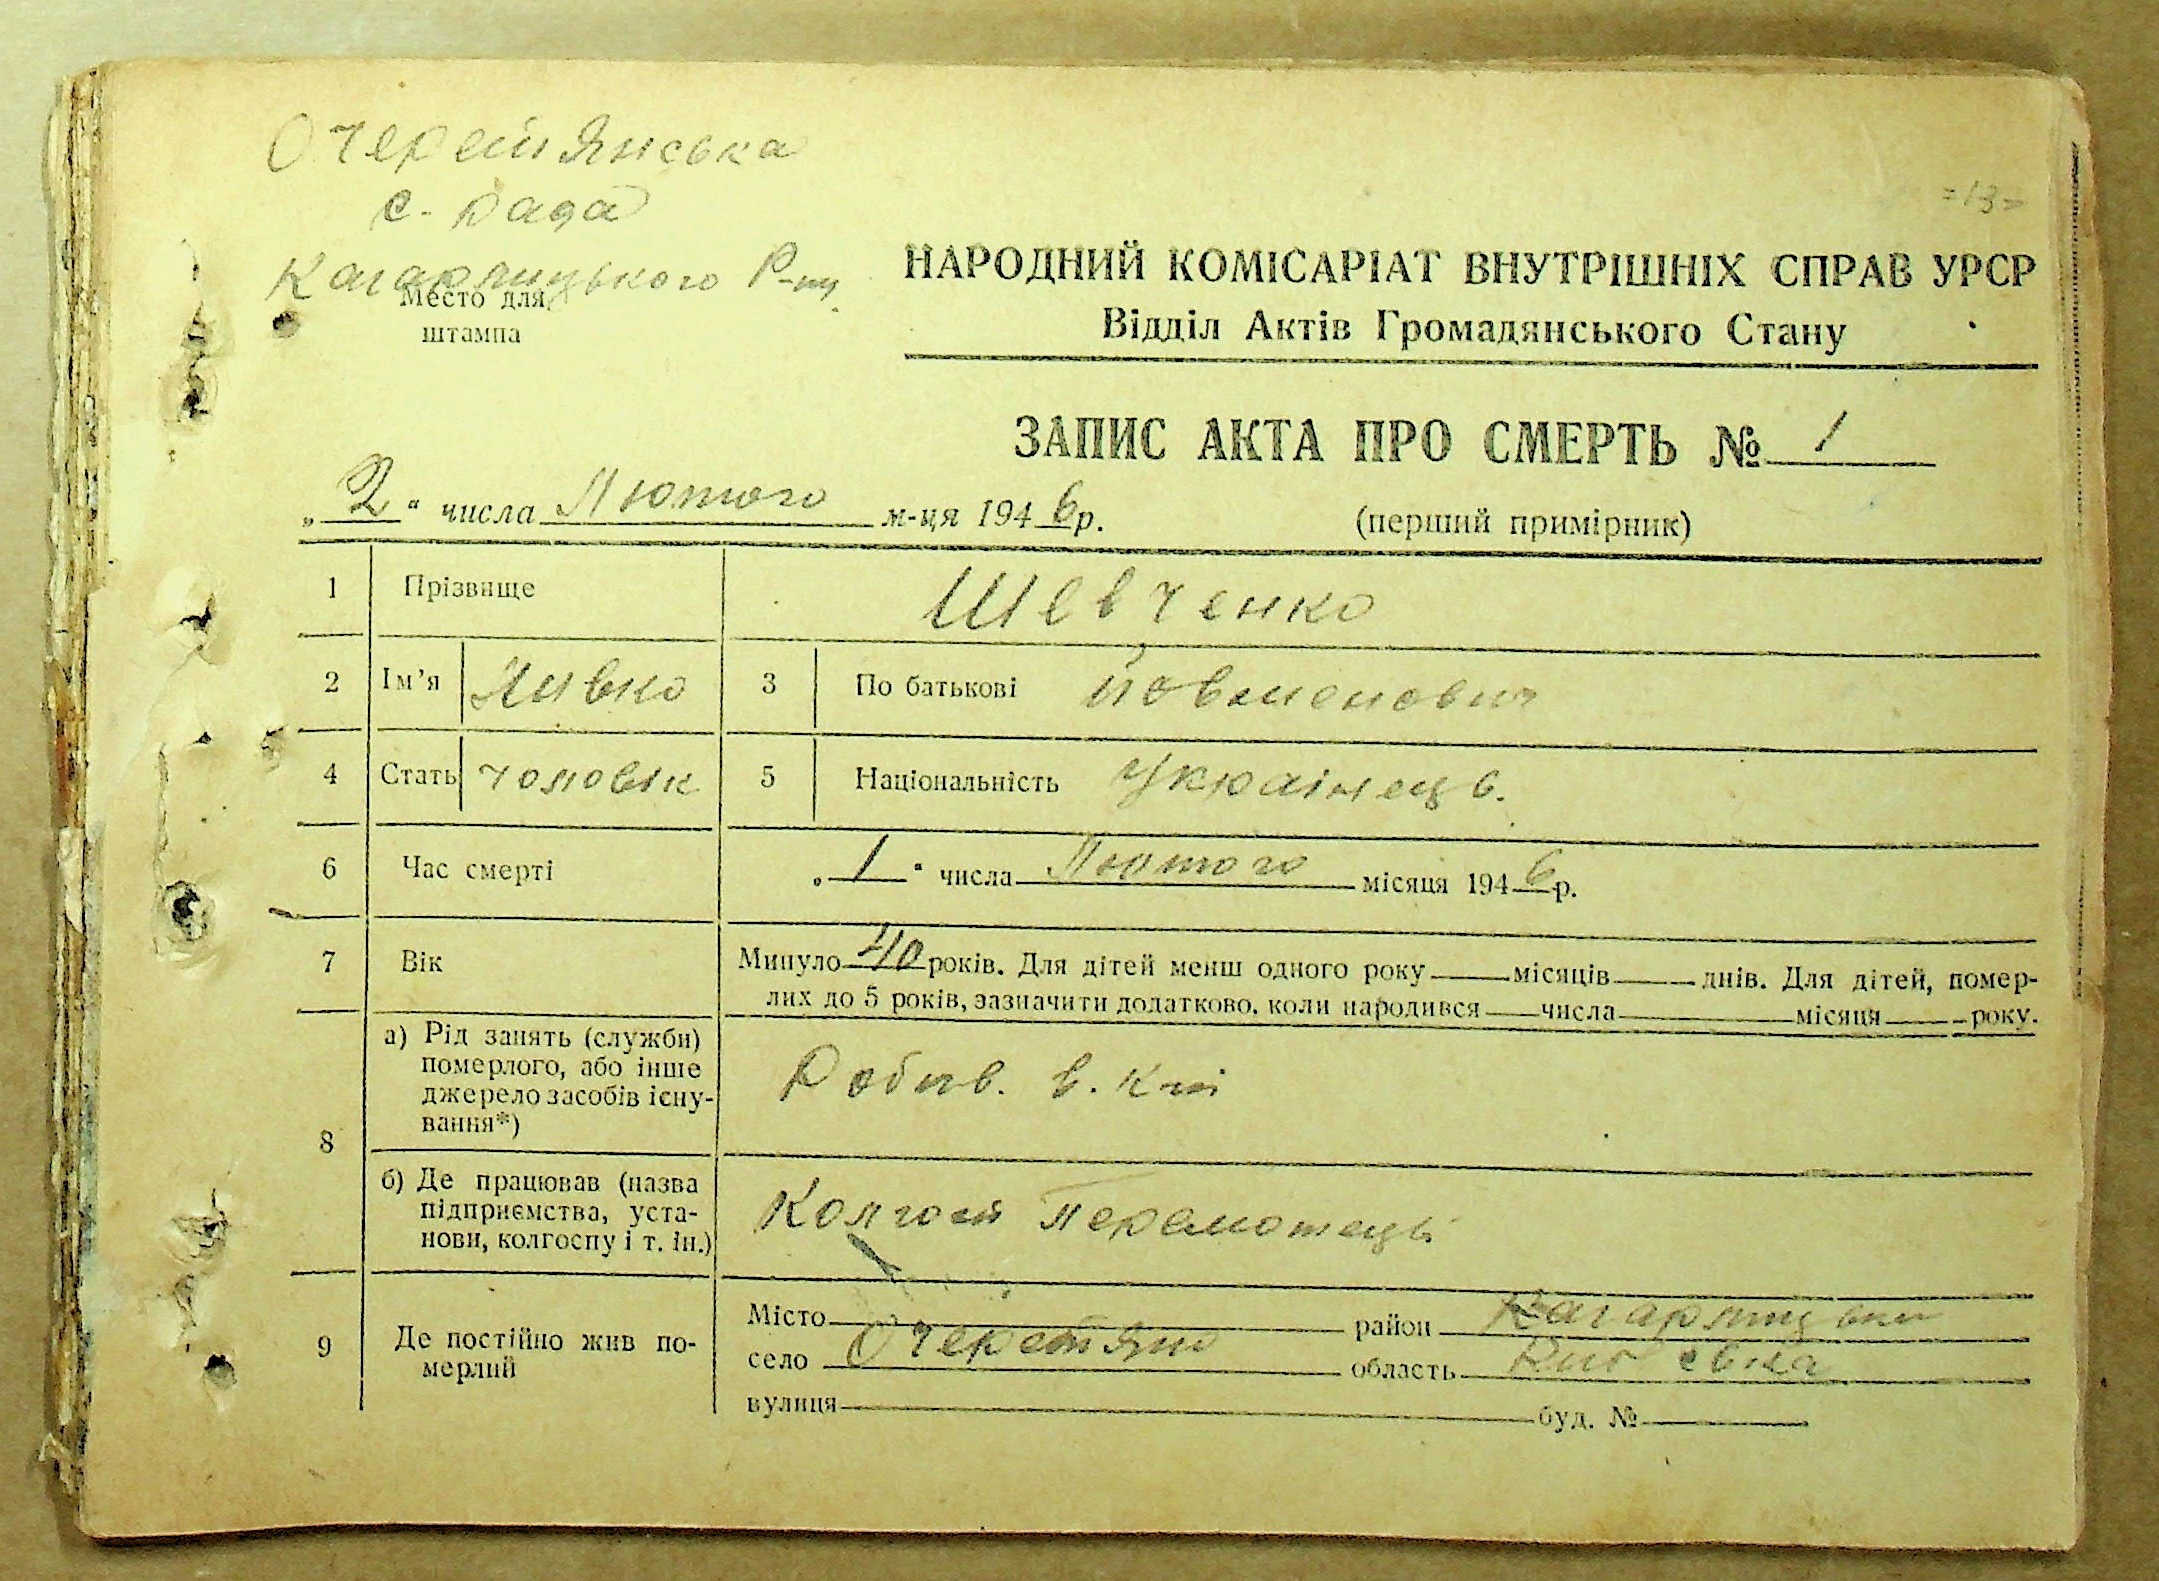 Очеретянська
с. рада
Кагарлицького Р-ну
Место для
штампа
=13=
НАРОДНИЙ КОМІСАРІАТ ВНУТРІШНІХ СПРАВ УРСР
Відділ Актів Громадянського Стану
ЗАПИС АКТА ПРО СМЕРТЬ № 1
„2“ числа Лютого м-ця 1946р.
(перший примірник)
1 Прізвище Шевченко
2 Ім’я 3 По батькові
4 Стать чоловік 5 Національність Українець.
6 Час смерті „1“ числа Лютого місяця 1946р.
7 Вік Минуло 40 років. Для дітей менш одного року місяців днів. Для дітей, помер-
лих до 5 років, зазначити додатково, коли народився числа місяця року.
8 а) Рід занять (служби)
померлого, або інше
джерело засобів існу-
вання*)
в.
б) Де працював (назва
підприємства, уста-
нови, колгоспу і т. ін.)
Колгосп
9 Де постійно жив по-
мерлий
Місто район
село область
вулиця буд. №